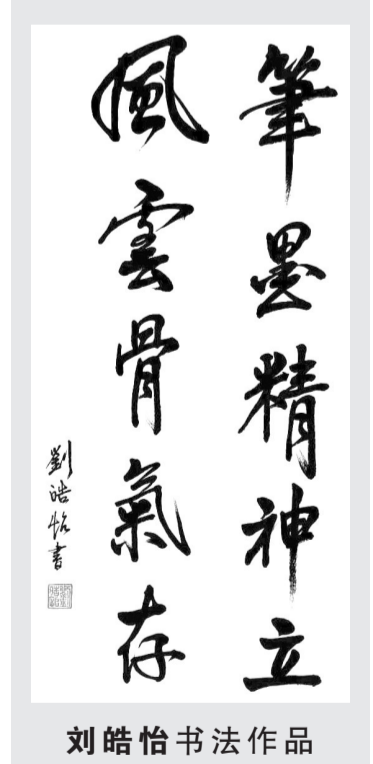 筆墨精神立
風雲骨氣存
劉皓怡書
刘皓怡书法作品